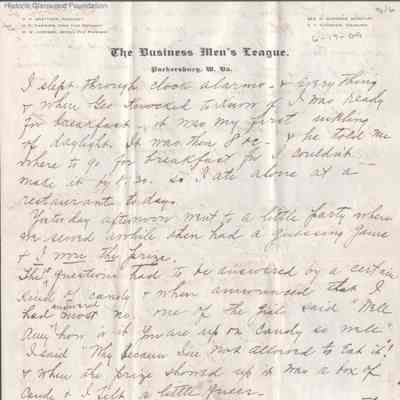 Historic Glenwood Foundation
The Business Men's League.
Parkersburg, W. Va.
I slept through clock alarms - & everything
& when Geo knocked to know if I was ready
for breakfast - it was my first inkling
of daylight. It was then 8 oc - & he told me
where to go for breakfast for I couldn't
make it by 8.30. So I ate alone at a
restaurant to day.
Yesterday afternoon went to a little party where
we sewed awhile then had a guessing game
& I won the prize.
The questions had to be answered by a certain
kind of candy & when announced that I
had answered most no. one of the girls said "Well
Amy how is it you are up on "candy so well"
I said "Why because I'm not allowed to eat it"!
& when the prize showed up it was a box of
candy & I felt a little queer.